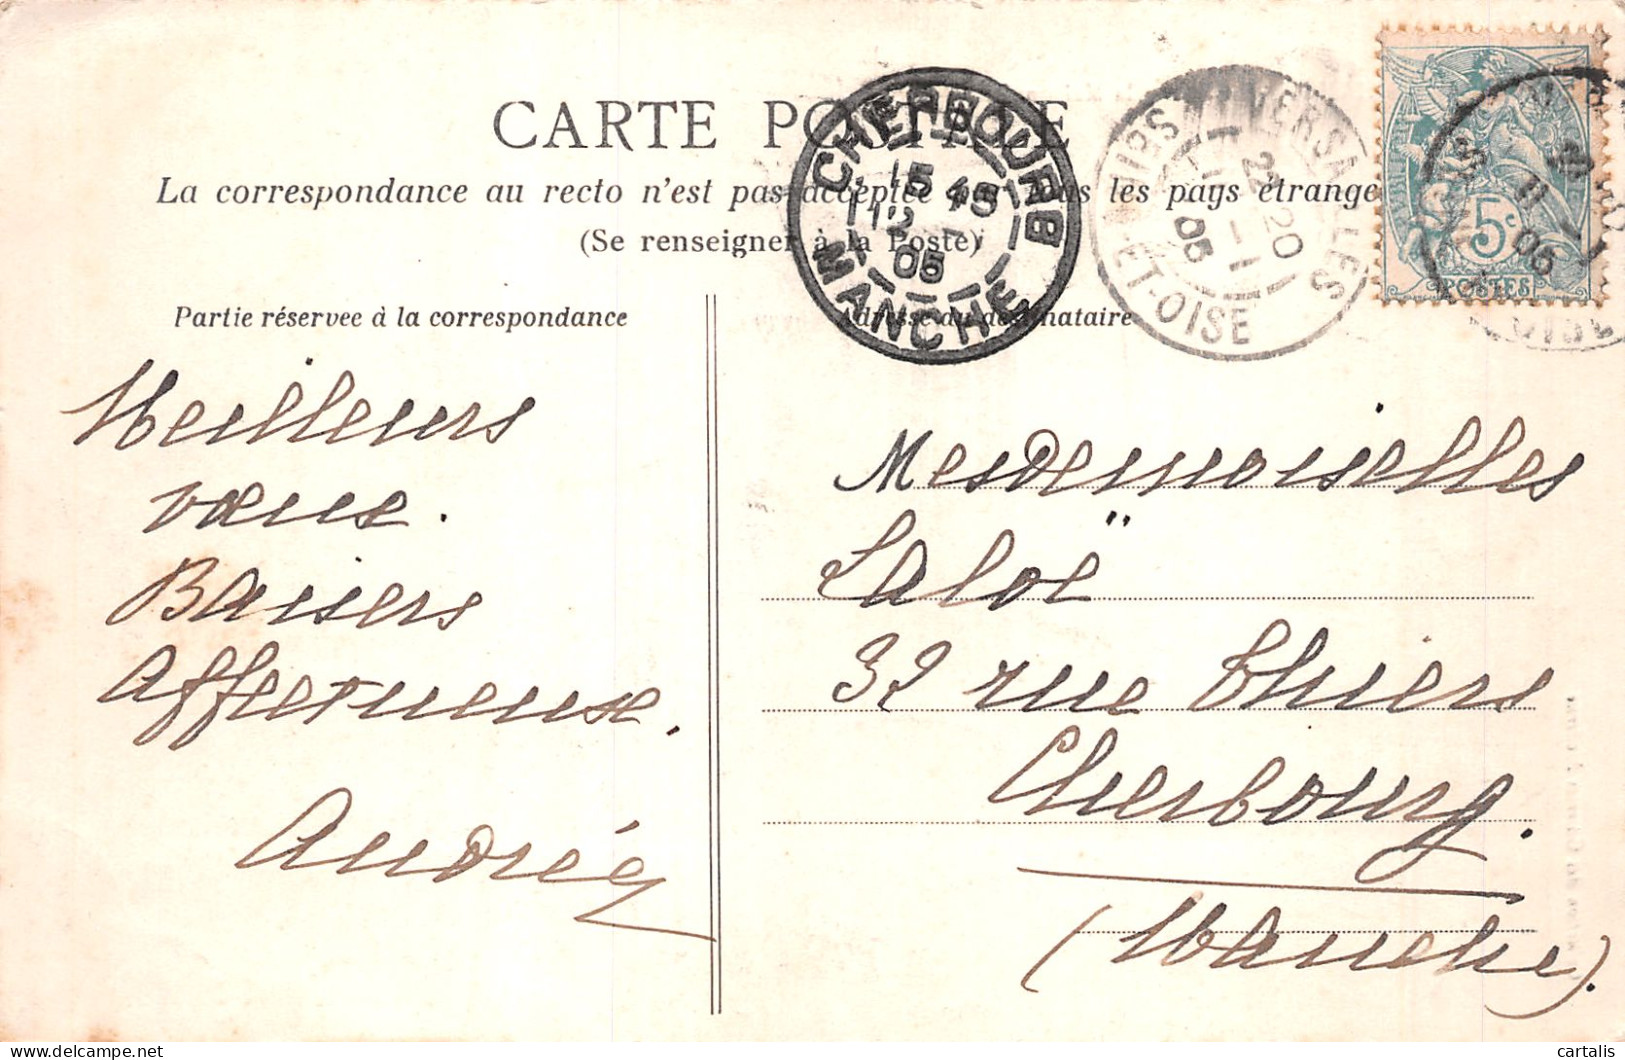 CARTE POSTALE
La correspondance au recto n'est pas acceptée par tous les pays étrange
(Se renseigner à la Poste)
CHERBOURG
15 45
12 - 1
05
MANCHE
VERSAILLES
22 20
05
ET-OISE
5c
POSTES
Partie réservee à la correspondance
Adresse du destinataire
Meilleurs
vœux.
Baisers
affectueux.
Andrée
Mesdemoiselles
Laloë
32 rue Thiers
Cherbourg.
(Manche).
delcampe.net
cartalis